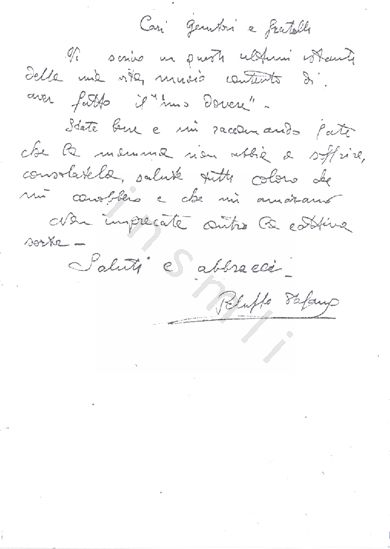 Cari Genitori e fratelli
Vi scrivo in questi ultimi istanti
della mia vita, muoio contento di
aver fatto il "mio dovere".
State bene e mi raccomando fate
che la mamma non abbia a soffrire,
consolatela, salutate tutti coloro che
mi conobbero e che mi amarono
Non imprecate contro la cattiva
sorte -
Saluti e abbracci
Peluffo Stefano
insmli